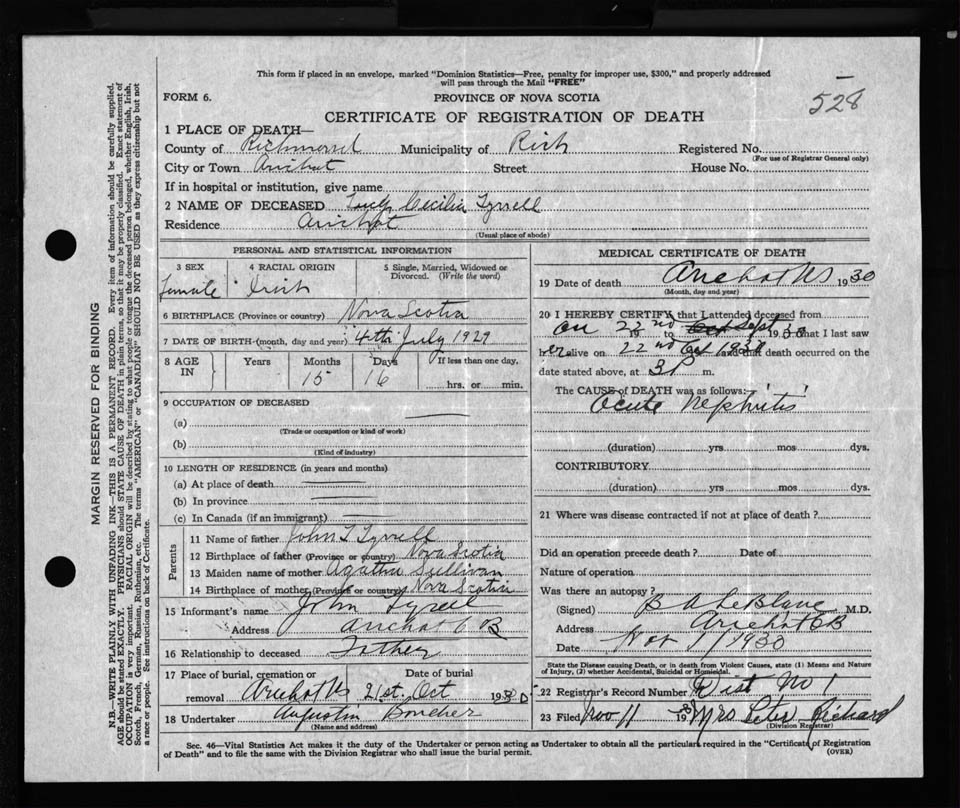 This form if placed in an envelope, marked "Dominion Statistics—Free, penalty for improper use, $300," and properly addressed
will pass through the Mail "FREE"
528
FORM 6.
PROVINCE OF NOVA SCOTIA
CERTIFICATE OF REGISTRATION OF DEATH
1 PLACE OF DEATH—
County of Richmond Municipality of Rich Registered No.
(For use of Registrar General only)
City or Town Arichat Street House No.
If in hospital or institution, give name
2 NAME OF DECEASED Cecilia Tyrrell
Residence Arichat
(Usual place of abode)
PERSONAL AND STATISTICAL INFORMATION
3 SEX 4 RACIAL ORIGIN 5 Single, Married, Widowed or
Divorced. (Write the word)
Female Irish
6 BIRTHPLACE (Province or country) Nova Scotia
7 DATE OF BIRTH-(month, day and year) 4th July 1929
8 AGE IN Years Months Days If less than one day,
15 16
hrs. or min.
9 OCCUPATION OF DECEASED
(a)
(Trade or occupation or kind of work)
(b)
(Kind of industry)
10 LENGTH OF RESIDENCE (in years and months)
(a) At place of death
(b) In province
(c) In Canada (if an immigrant)
Parents
11 Name of father John Tyrrell
12 Birthplace of father (Province or country) Nova Scotia
13 Maiden name of mother Agatha Sullivan
14 Birthplace of mother (Province or country) Nova Scotia
15 Informant's name John Tyrell
Address Arichat C B
16 Relationship to deceased Father
17 Place of burial, cremation or Date of burial
removal Arichat NS 21st Oct 1930
18 Undertaker Augustin Boucher
(Name and address)
MEDICAL CERTIFICATE OF DEATH
19 Date of death Arichat NS 1930
(Month, day and year)
20 I HEREBY CERTIFY that I attended deceased from
on 22nd 19 to Sept 1930 that I last saw
her alive on 22nd Oct 1930 and that death occurred on the
date stated above, at 3 P m.
The CAUSE of DEATH was as follows:—
Acute Nephritis
(duration) yrs mos dys.
CONTRIBUTORY
(duration) yrs mos dys.
21 Where was disease contracted if not at place of death?
Did an operation precede death? Date of
Nature of operation
Was there an autopsy?
(Signed) B A LeBlanc M.D.
Address Arichat CB
Date Nov 1/1930
State the Disease causing Death, or in death from Violent Causes, state (1) Means and Nature
of Injury, (2) whether Accidental, Suicidal or Homicidal.
22 Registrar's Record Number Dist No 1
23 Filed Nov 11 1930 Mrs Peter Richard
(Division Registrar)
Sec. 46—Vital Statistics Act makes it the duty of the Undertaker or person acting as Undertaker to obtain all the particulars required in the "Certificate of Registration
of Death" and to file the same with the Division Registrar who shall issue the burial permit.
(OVER)
MARGIN RESERVED FOR BINDING
N.B.—WRITE PLAINLY WITH UNFADING INK—THIS IS A PERMANENT RECORD. Every item of information should be carefully supplied.
AGE should be stated EXACTLY. PHYSICIANS should STATE CAUSE OF DEATH in plain terms, so that it may be properly classified. Exact statement of
OCCUPATION is very important. RACIAL ORIGIN will be described by stating to what people or tongue the deceased person belonged, whether English, Irish,
Scotch, French, German, Russian, Ruthenian, etc. The terms "AMERICAN" or "CANADIAN" SHOULD NOT BE USED as they express citizenship but not
a race or people. See instructions on back of Certificate.